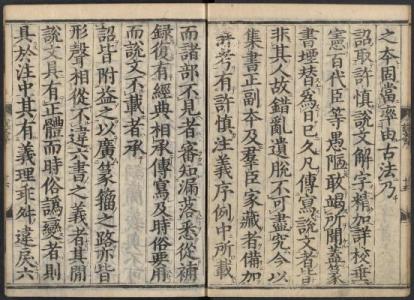 之本固當率由古法乃
詔取許慎說文解字精加詳校垂
憲百代臣等愚陋敢竭所聞蓋篆
書堙替爲日已久凡傳寫說文者皆
非其人故錯亂遺脫不可盡究今以
集書正副本及羣臣家藏者備加
詳考有許慎注義序例中所載
而諸部不見者審知漏落悉從補
録復有經典相承傳寫及時俗要用
而說文不載者承
詔皆附益之以廣篆籀之路亦皆
形聲相從不違六書之義者其間
說文具有正體而時俗譌變者則
具於注中其有義理乖舛違戾六